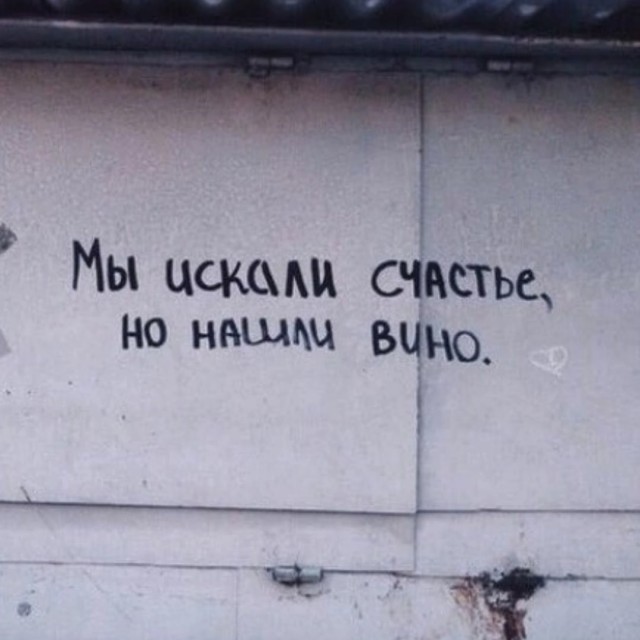 Мы искали счастье,
но нашли вино.